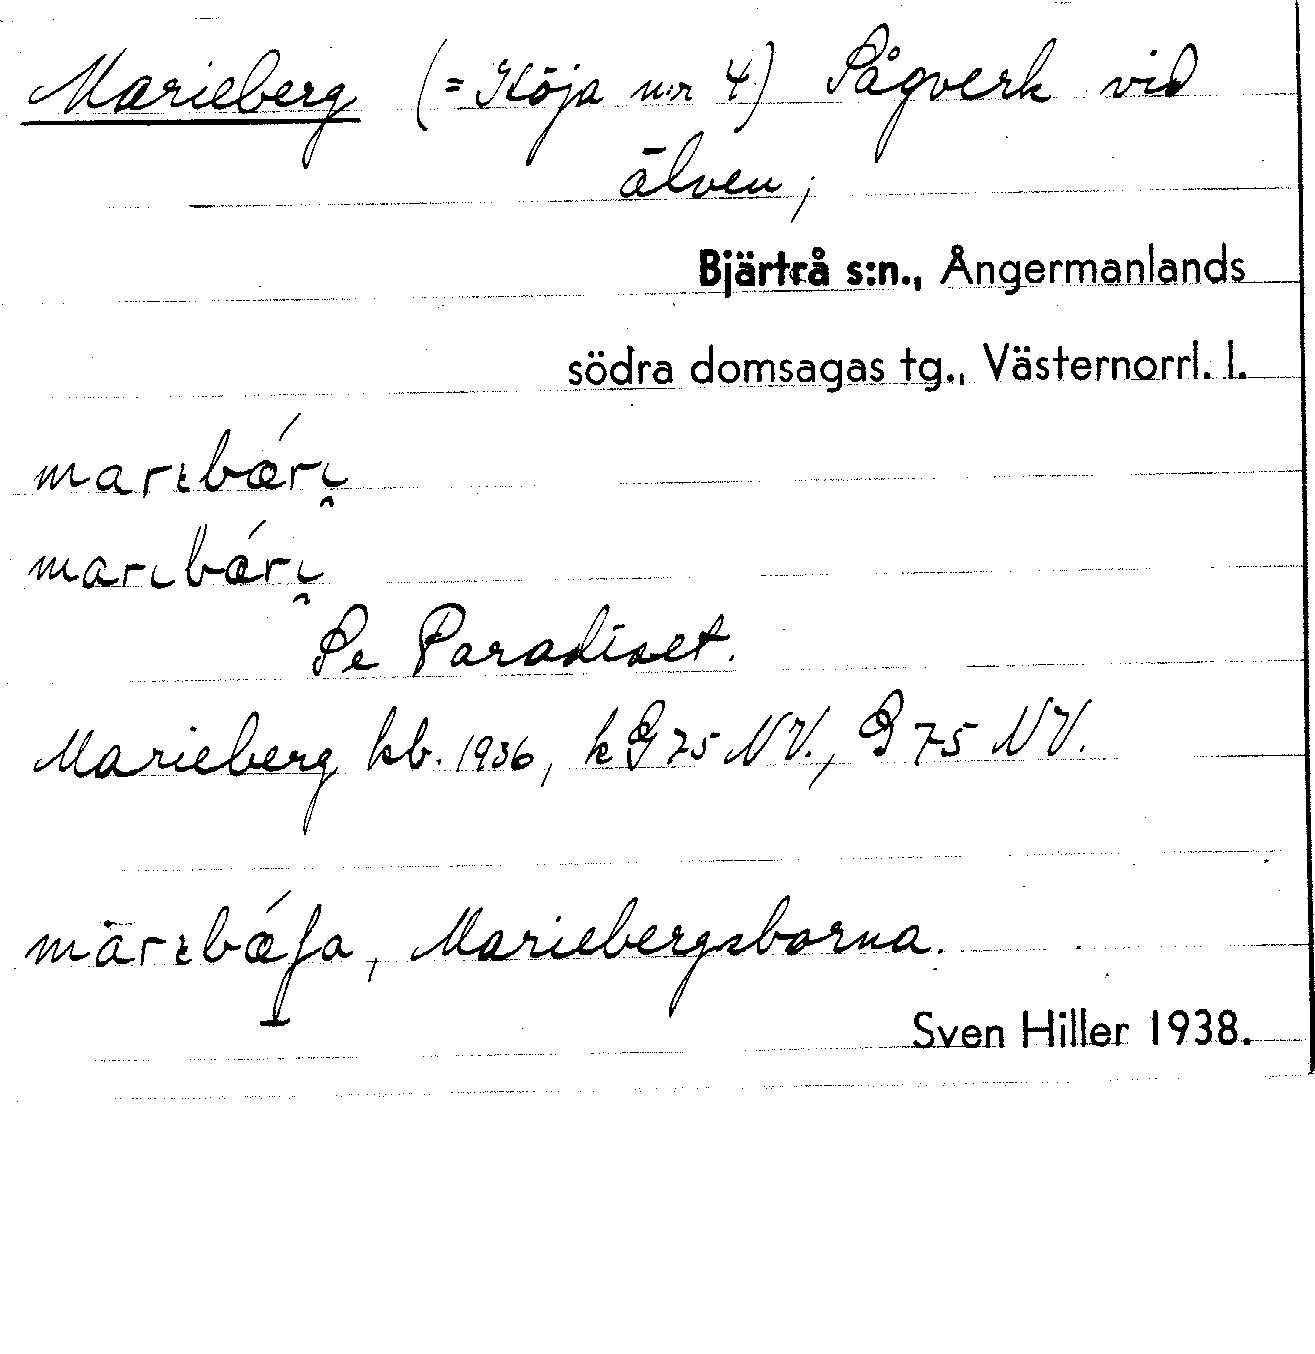 Marieberg (= Köja n:r 4) Sågverk vid
älven;
Bjärtrå s:n., Ångermanlands
södra domsagas tg., Västernorrl. l.
marɩbǽrɩ̯
marɩbǽrɩ̯
Se Paradiset.
Marieberg kb. 1936, kG 75 NV., G 75 NV.
mārɩbǽʃa, Mariebergsborna.
Sven Hiller 1938.